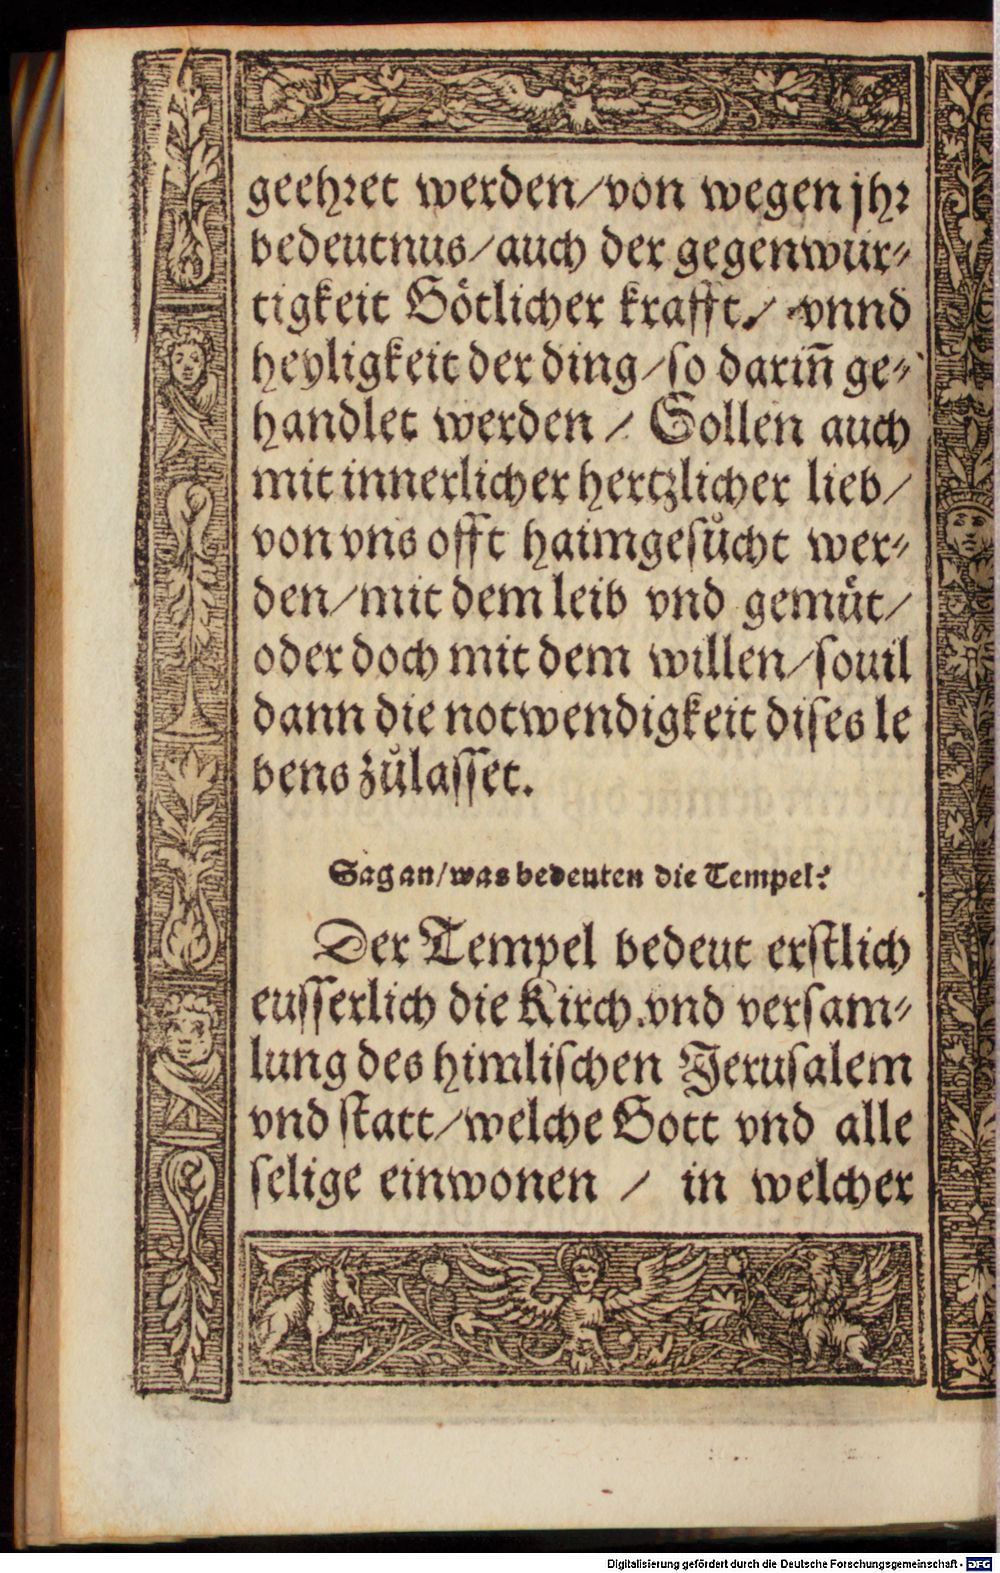 geehret werden/von wegen jhr
bedeutnus/auch der gegenwur⸗
tigkeit Götlicher krafft/ vnnd
heyligkeit der ding/so darin̄ ge⸗
handlet werden / Sollen auch
mit innerlicher hertzlicher lieb/
von vns offt haimgesůcht wer⸗
den/mit dem leib vnd gemüt/
oder doch mit dem willen/souil
dann die notwendigkeit dises le
bens zůlasset.
Sag an/was bedeuten die Tempel?
Der Tempel bedeut erstlich
eusserlich die Kirch vnd versam⸗
lung des himlischen Jerusalem
vnd statt/welche Gott vnd alle
selige einwonen / in welcher
Digitalisierung gefördert durch die Deutsche Forschungsgemeinschaft - DFG